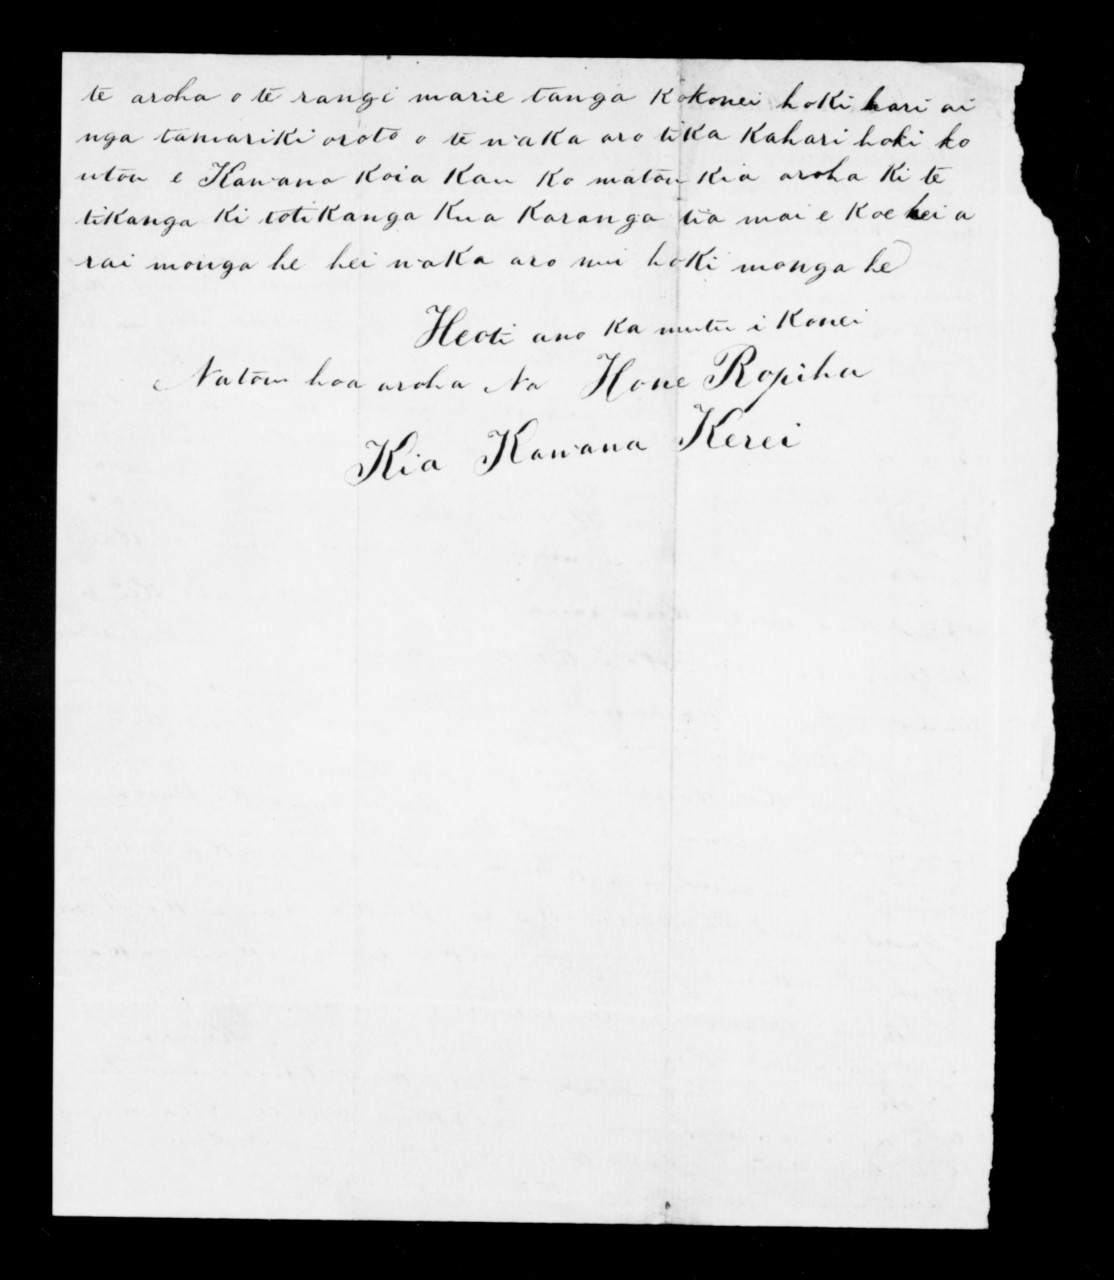 te aroha o te rangi marie tanga Kokonei hoki hari ai
nga tamariki oroto o te waka aro tika Kahari hoki ko
utou e Kawana Koia Kau Ko matou Kia aroha Ki te
tikanga Ki totikanga Kua Karanga tia mai e Koe hei a
rai monga he hei waka aro nui hoki monga he
Heoti ano Ka mutu i Konei
Natou hoa aroha Na Hone Ropiha
Kia Kawana Kerei